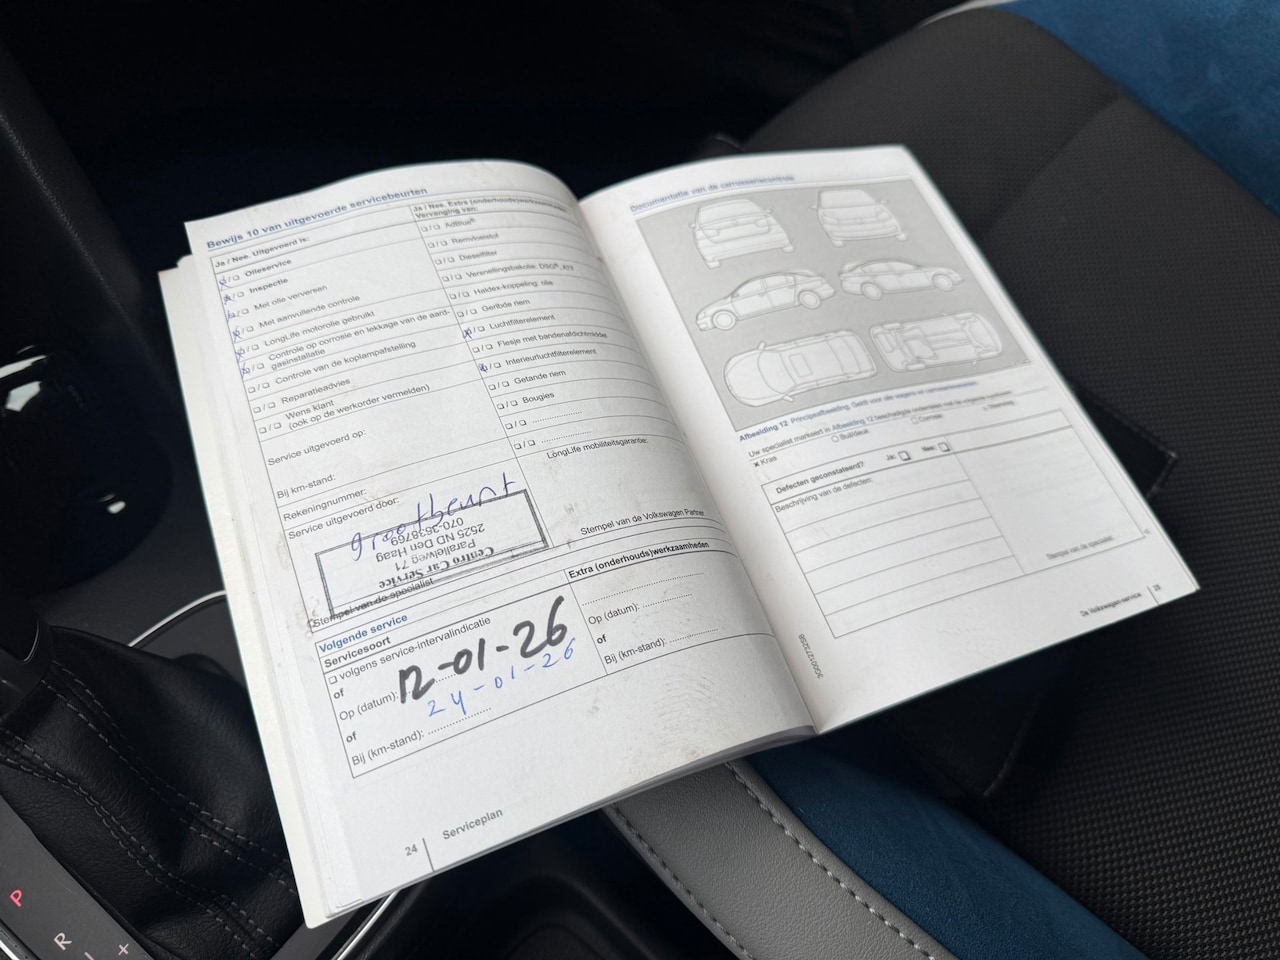 Bewijs 10 van uitgevoerde servicebeurten
Ja / Nee. Uitgevoerd is:
Olieservice
Inspectie
Met olie verversen
Met aanvullende controle
LongLife motorolie gebruikt
Controle op corrosie en lekkage van de aard-
gasinstallatie
Controle van de koplampafstelling
Reparatieadvies
Wens klant
(ook op de werkorder vermelden)
Service uitgevoerd op:
Bij km-stand:
Rekeningnummer:
Service uitgevoerd door:
Ja / Nee. Extra (onderhouds)werkzaamheden
Vervanging van:
AdBlue®
Remvloeistof
Dieselfilter
Versnellingsbakolie: DSG®,
Haldex-koppeling: olie
Geribde riem
Luchtfilterelement
Flesje met bandenafdichtmiddel
Interieurluchtfilterelement
Getande riem
Bougies
LongLife mobiliteitsgarantie:
grootbeurt
Centro Car Service
Parallelweg 71
2525 ND Den Haag
070-3638769
Stempel van de specialist
Stempel van de Volkswagen Partner
Volgende service
Servicesoort
volgens service-intervalindicatie
of
Op (datum): 12-01-26
24-01-26
of
Bij (km-stand):
Extra (onderhouds)werkzaamheden
Op (datum):
of
Bij (km-stand):
24
Serviceplan
Documentatie van de carrosseriecontrole
Afbeelding 12 Principeafbeelding: Geldt voor alle wagens en carrosserievormen
Uw specialist markeert in Afbeelding 12 beschadigde onderdelen met de volgende symbolen:
x Kras
Buil/deuk
Corrosie
Steenslag
Defecten geconstateerd?
Ja:
Nee:
Beschrijving van de defecten:
Stempel van de specialist
De Volkswagen-service
P
R
+